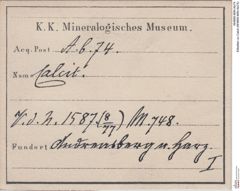 K. K. Mineralogisches Museum.
Acq. Post A. b. 74.
Nom Calcit.
V. d. N. 1587 (8/77) M. 748.
Fundort Andreasberg u. Harz
I